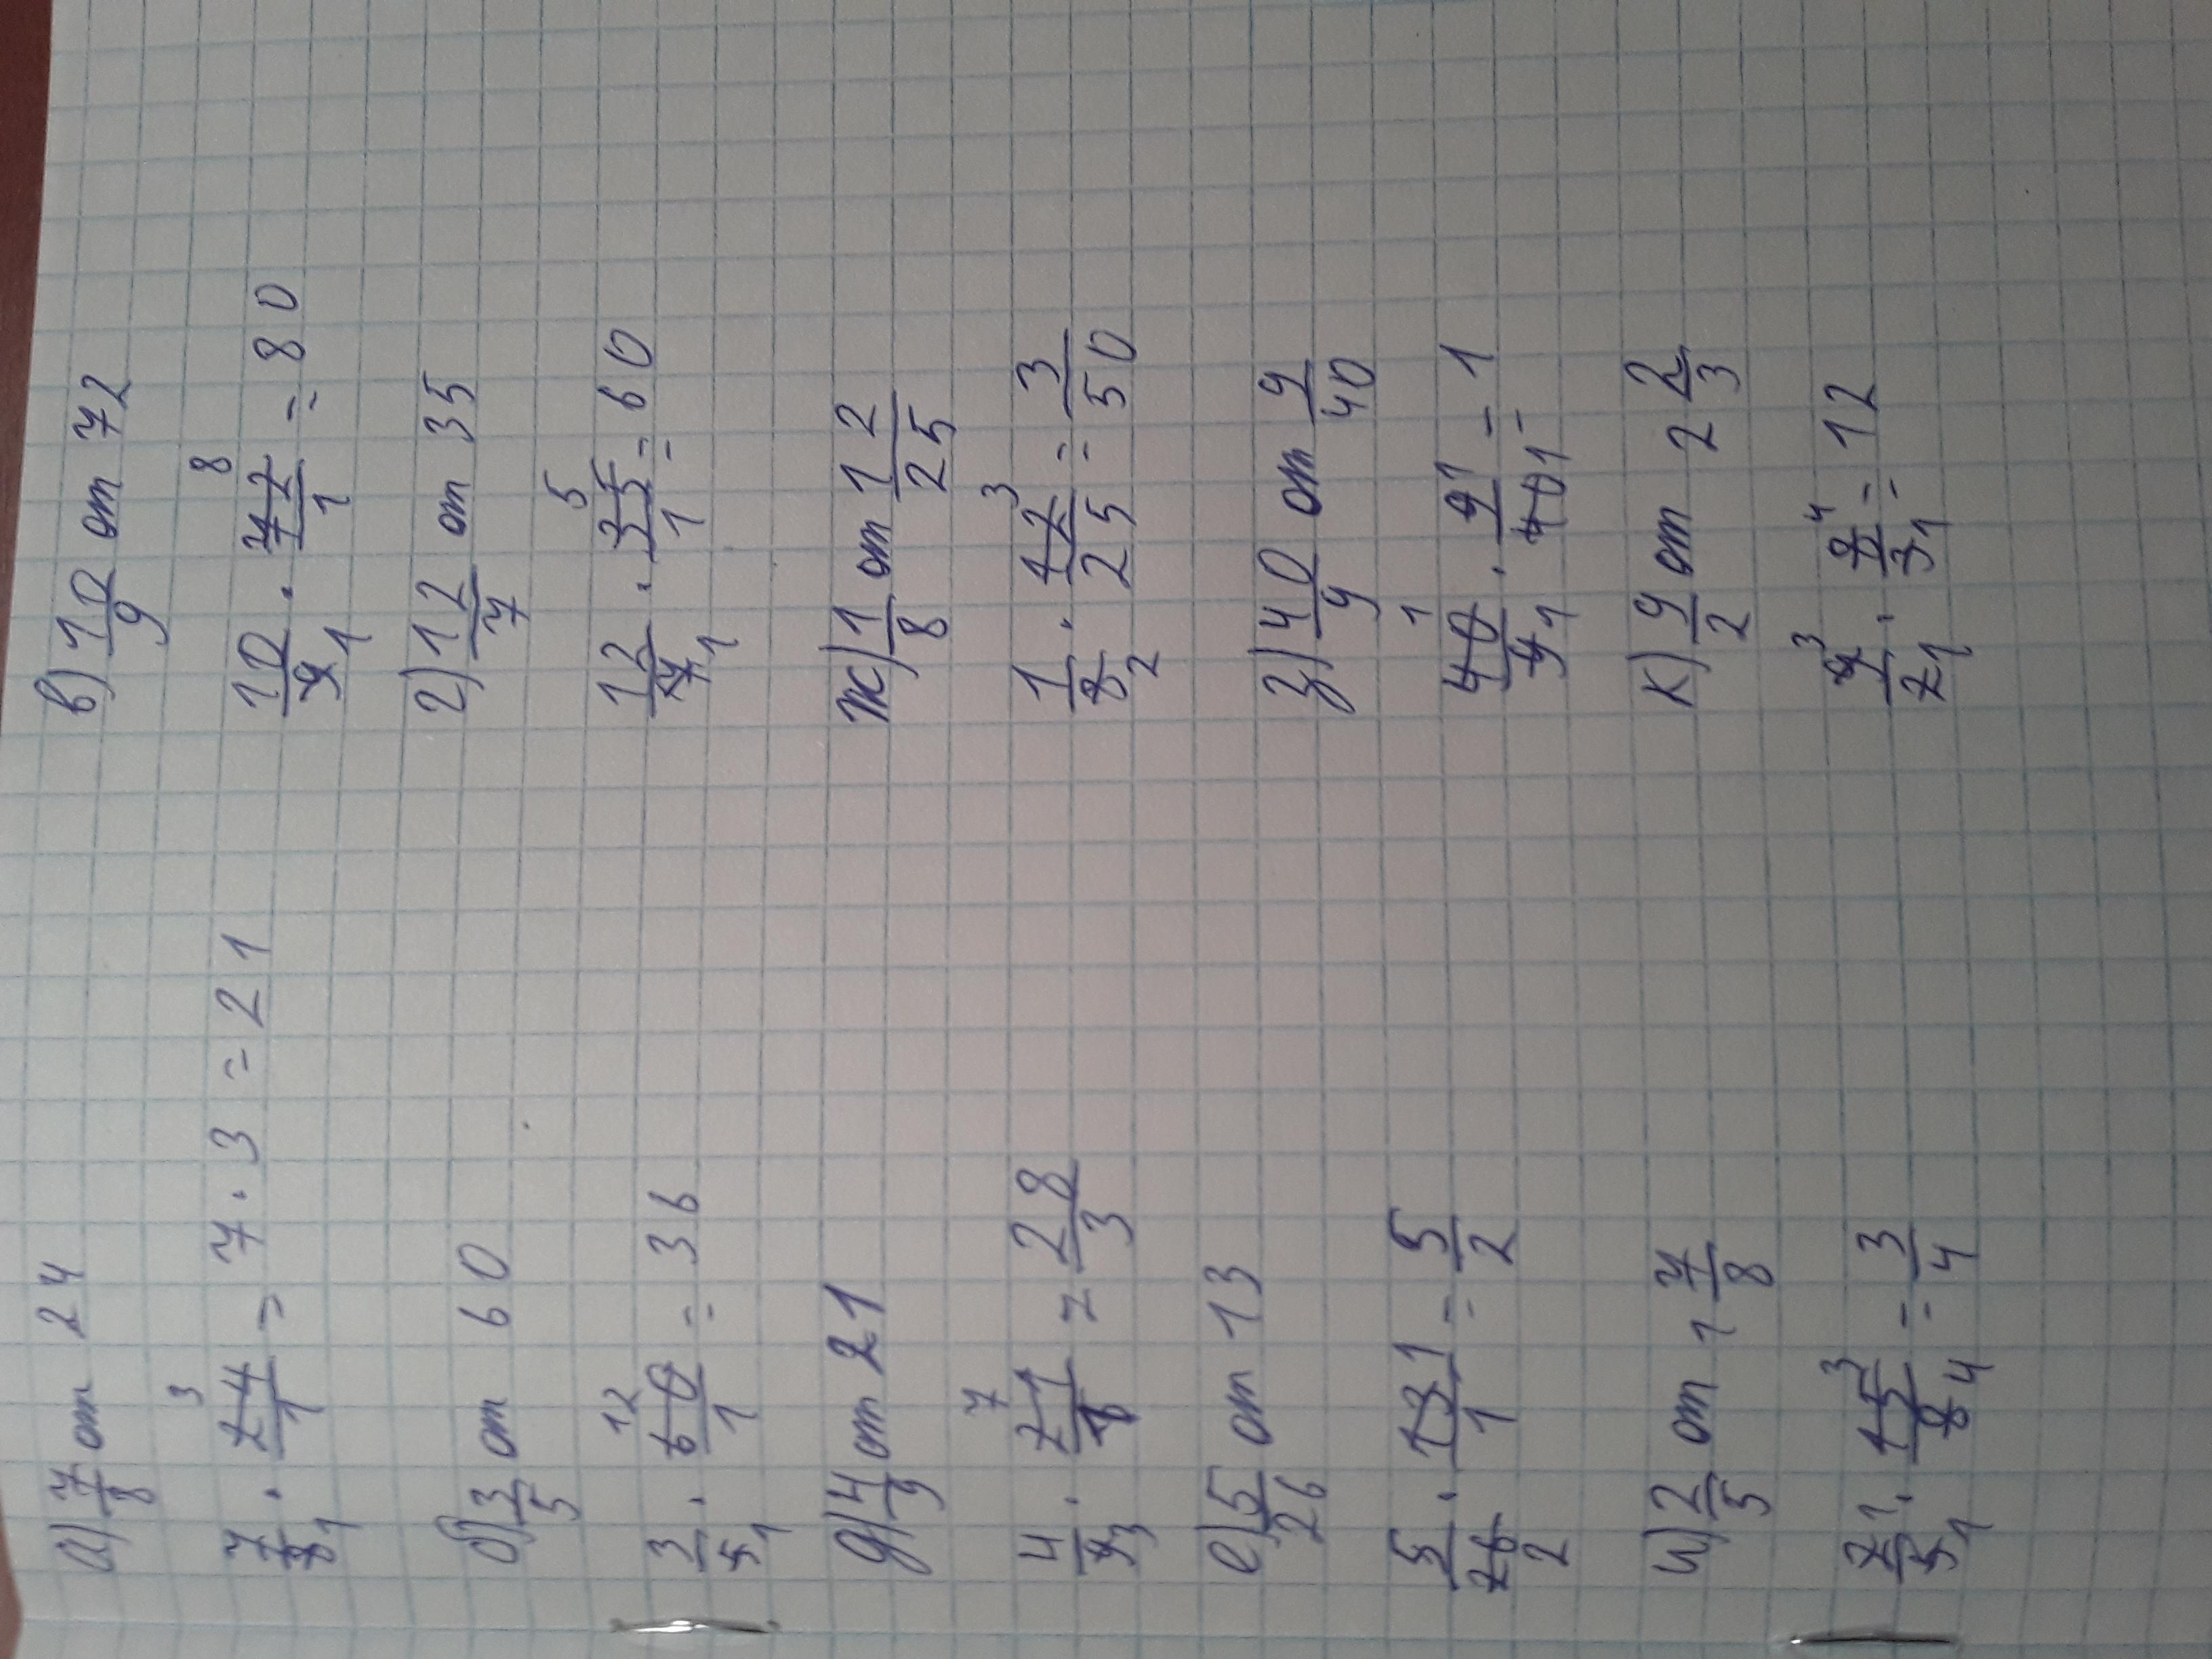 а) 7/8 от 24
7/8 1 · 24 3/1 = 7 · 3 = 21
б) 3/5 от 60
3/5 1 · 60 12/1 = 36
д) 4/9 от 21
4/9 3 · 21 7/1 = 28/3
е) 5/26 от 13
5/26 2 · 13 1/1 = 5/2
и) 2/5 от 1 7/8
2 1/5 1 · 15 3/8 4 = 3/4
в) 10/9 от 72
10/9 1 · 72 8/1 = 80
г) 12/7 от 35
12/7 1 · 35 5/1 = 60
ж) 1/8 от 12/25
1/8 2 · 12 3/25 = 3/50
з) 40/9 от 9/40
40 1/9 1 · 9 1/40 1 = 1
к) 9/2 от 2 2/3
9 3/2 1 · 8 4/3 1 = 12